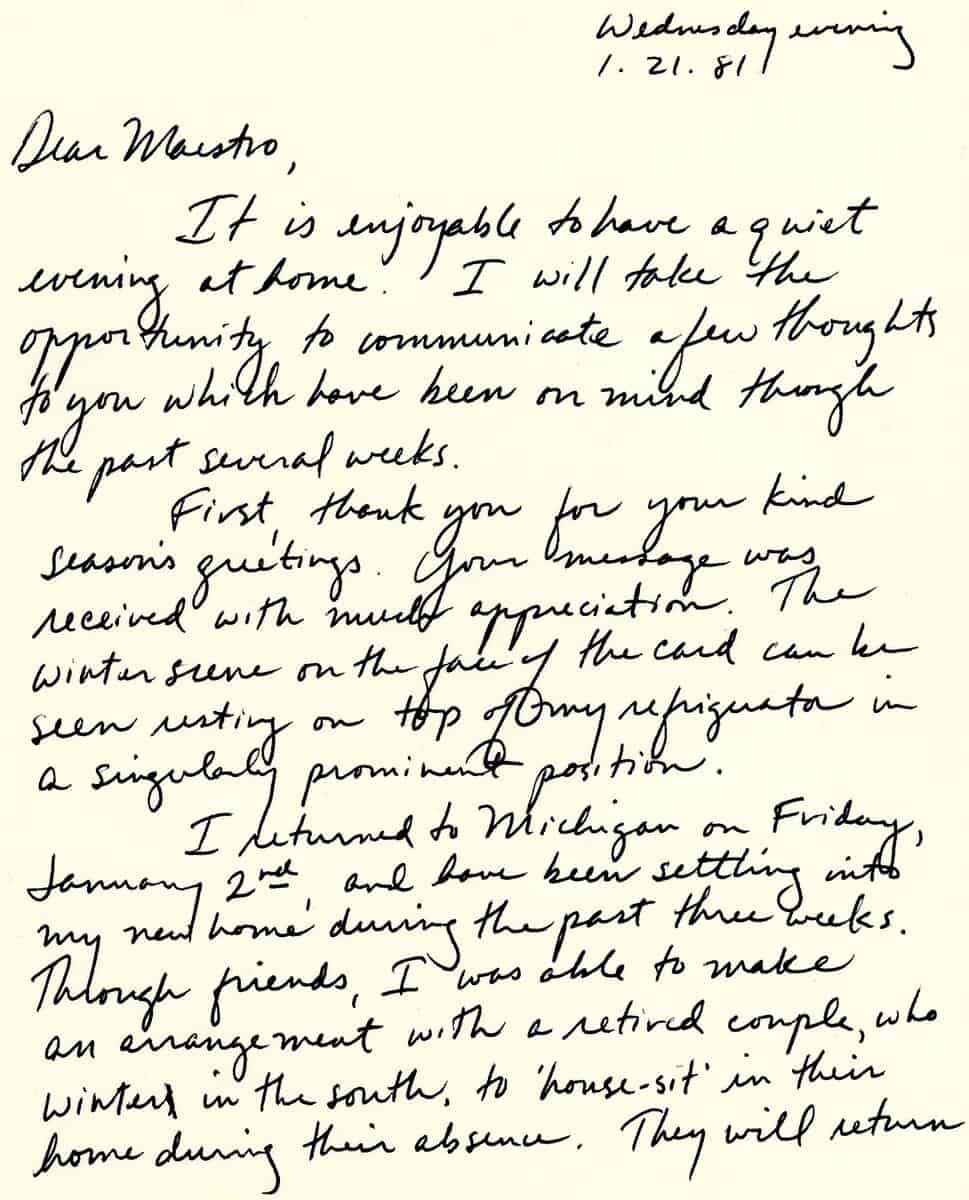 Wednesday evening
1.21.81
Dear Maestro,
It is enjoyable to have a quiet
evening at home. I will take the
opportunity to communicate a few thoughts
to you which have been on mind though
the past several weeks.
First, thank you for your kind
season's greetings. Your message was
received with much appreciation. The
winter scene on the face of the card can be
seen resting on top of my refriguator in
a singularly prominent position.
I returned to Michigan on Friday,
January 2nd, and have been settling into
my new home during the past three weeks.
Through friends, I was able to make
an arrangement with a retired couple, who
winter in the south, to 'house-sit' in their
home during their absence. They will return